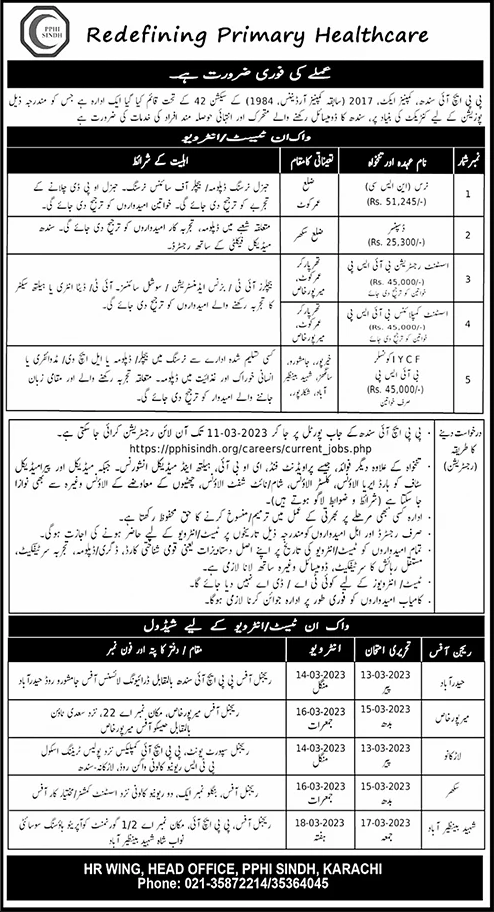 PPHI
SINDH
Redefining Primary Healthcare
عملے کی فوری ضرورت ہے۔
پی پی ایچ آئی سندھ، کمپنیز ایکٹ، 2017 (سابقہ کمپنیز آرڈیننس، 1984) کے سیکشن 42 کے تحت قائم کیا گیا ایک ادارہ ہے جس کو مندرجہ ذیل
پوزیشن کے لیے کنٹریکٹ کی بنیاد پر، سندھ کا ڈومیسائل رکھنے والے متحرک اور انتہائی حوصلہ مند افراد کی خدمات کی ضرورت ہے
واک ان ٹیسٹ/انٹرویو
نمبر شمار نام عہدہ اور تنخواہ تعیناتی کا مقام اہلیت کے شرائط
1 نرس (این ایس سی) (Rs. 51,245/-) ضلع عمرکوٹ
جنرل نرسنگ ڈپلومہ/ بیچلر آف سائنس نرسنگ۔ جنرل او پی ڈی چلانے کے
تجربے کو ترجیح دی جائے گی۔ خواتین امیدواروں کو ترجیح دی جائے گی۔
2 ڈسپنسر (Rs. 25,300/-) ضلع سکھر
متعلقہ شعبے میں ڈپلومہ، تجربہ کار امیدواروں کو ترجیح دی جائے گی۔ سندھ
میڈیکل فیکلٹی کے ساتھ رجسٹرڈ۔
3 اسسٹنٹ رجسٹریشن بی آئی ایس پی (Rs. 45,000/-) خواتین کو ترجیح دی جائے گی تھرپارکر عمرکوٹ، میرپورخاص
بیچلرز آئی ٹی/ بزنس ایڈمنسٹریشن/ سوشل سائنسز۔ آئی ٹی/ ڈیٹا انٹری یا ہیلتھ سیکٹر
کا تجربہ رکھنے والے امیدواروں کو ترجیح دی جائے گی۔
4 اسسٹنٹ کمپلائنس بی آئی ایس پی (Rs. 45,000/-) خواتین کو ترجیح دی جائے گی تھرپارکر عمرکوٹ، میرپورخاص
5 IYCF کونسلر بی آئی ایس پی (Rs. 45,000/-) صرف خواتین خیرپور، جامشورو، سانگھڑ، شہید بینظیر آباد، شکارپور،
کسی تسلیم شدہ ادارے سے نرسنگ میں بیچلرز/ ڈپلومہ یا ایل ایچ وی/ مڈوائفری یا
انسانی خوراک اور غذائیت میں ڈپلومہ۔ متعلقہ تجربہ رکھنے والے اور مقامی زبان
جاننے والے امیدوار کو ترجیح دی جائے گی۔
درخواست دینے
کا طریقہ
(رجسٹریشن)
• پی پی ایچ آئی سندھ کے جاب پورٹل پر جا کر 11-03-2023 تک آن لائن رجسٹریشن کرائی جا سکتی ہے۔
https://pphisindh.org/careers/current_jobs.php
• تنخواہ کے علاوہ دیگر فوائد، جیسے پراویڈنٹ فنڈ، ای او بی آئی، ہیلتھ اینڈ میڈیکل انشورنس۔ جبکہ میڈیکل اور پیرامیڈیکل
سٹاف کو ہارڈ ایریا الاؤنس، کلسٹر الاؤنس، شام/نائٹ شفٹ الاؤنس، چھٹیوں کے معاوضے کے الاؤنس وغیرہ سے بھی نوازا
جا سکتا ہے (شرائط و ضوابط لاگو ہوتے ہیں)۔
• ادارہ کسی بھی مرحلے پر بھرتی کے عمل میں ترمیم/منسوخ کرنے کا حق محفوظ رکھتا ہے۔
• صرف رجسٹرڈ اور اہل امیدواروں کو مندرجہ ذیل تاریخوں پر ٹیسٹ/انٹرویو کے لیے حاضر ہونے کی اجازت ہوگی۔
• تمام امیدواروں کو ٹیسٹ/انٹرویو کی تاریخ پر اپنے اصل دستاویزات یعنی قومی شناختی کارڈ، ڈگری/ڈپلومہ، تجربہ سرٹیفکیٹ،
مستقل رہائش کا سرٹیفکیٹ، ڈومیسائل وغیرہ ساتھ لانا لازمی ہے۔
• ٹیسٹ/انٹرویوز کے لیے کوئی ٹی اے/ڈی اے نہیں دیا جائے گا۔
• کامیاب امیدواروں کو فوری طور پر ادارہ جوائن کرنا لازمی ہوگا۔
واک ان ٹیسٹ/انٹرویو کے لیے شیڈول
ریجن آفس تحریری امتحان انٹرویو مقام/دفتر کا پتہ اور فون نمبر
حیدرآباد 13-03-2023 پیر 14-03-2023 منگل ریجنل آفس پی پی ایچ آئی سندھ بالمقابل ڈرائیونگ لائسنس آفس جامشورو روڈ حیدرآباد
میرپورخاص 15-03-2023 بدھ 16-03-2023 جمعرات ریجنل آفس میرپورخاص، مکان نمبر اے 22، نزد سعدی ٹاؤن
بالمقابل حیسکو آفس میرپورخاص
لاڑکانو 13-03-2023 پیر 14-03-2023 منگل ریجنل سپورٹ یونٹ، پی پی ایچ آئی کمپلیکس نزد پولیس ٹریننگ اسکول
پی ٹی ایس ریونیو کالونی وآکن روڈ، لاڑکانہ، سندھ
سکھر 15-03-2023 بدھ 16-03-2023 جمعرات ریجنل آفس، بنگلو نمبر ایک، دو ریونیو کالونی نزد اسسٹنٹ کمشنر/مختیار کار آفس
شہید بینظیر آباد 17-03-2023 جمعہ 18-03-2023 ہفتہ ریجنل آفس، پی پی ایچ آئی، مکان نمبر اے 1/2 گورنمنٹ کوآپریٹو ہاؤسنگ سوسائٹی
نواب شاہ شہید بینظیر آباد
HR WING, HEAD OFFICE, PPHI SINDH, KARACHI
Phone: 021-35872214/35364045